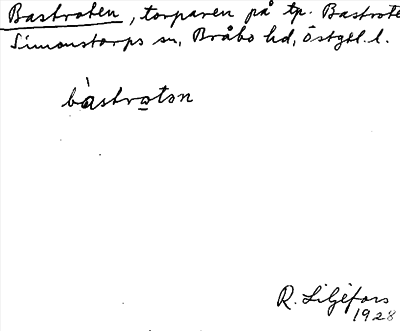 Bastroten, torparen på tp. Bastrote
Simonstorps sn, Bråbo hd, Östgtl. l.
bàstrotən
R. Liljefors
1928